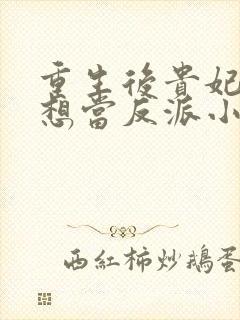 重生後貴妃
想當反派小
西紅柿炒鵝蛋